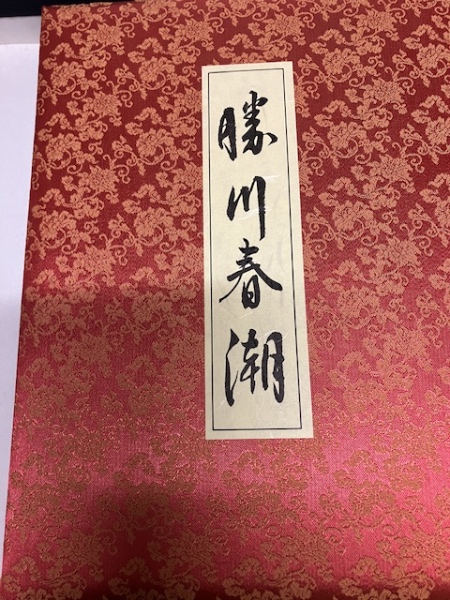 勝川春潮